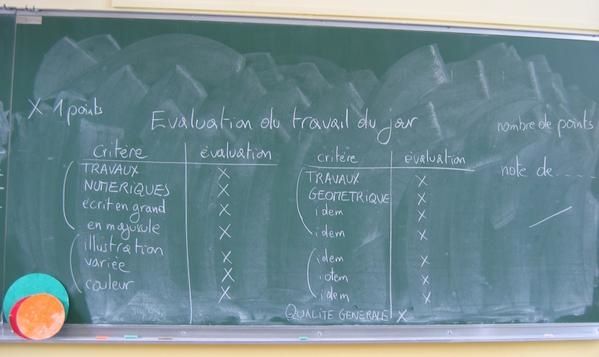 X 1 points
Evaluation du travail du jour
nombre de points
note de ....
critère évaluation
TRAVAUX X
NUMERIQUES X
écrit en grand X
en majuscule X
illustration X
variée X
couleur X
critère évaluation
TRAVAUX X
GEOMETRIQUE X
idem X
idem X
idem X
idem X
idem X
QUALITE GENERALE X